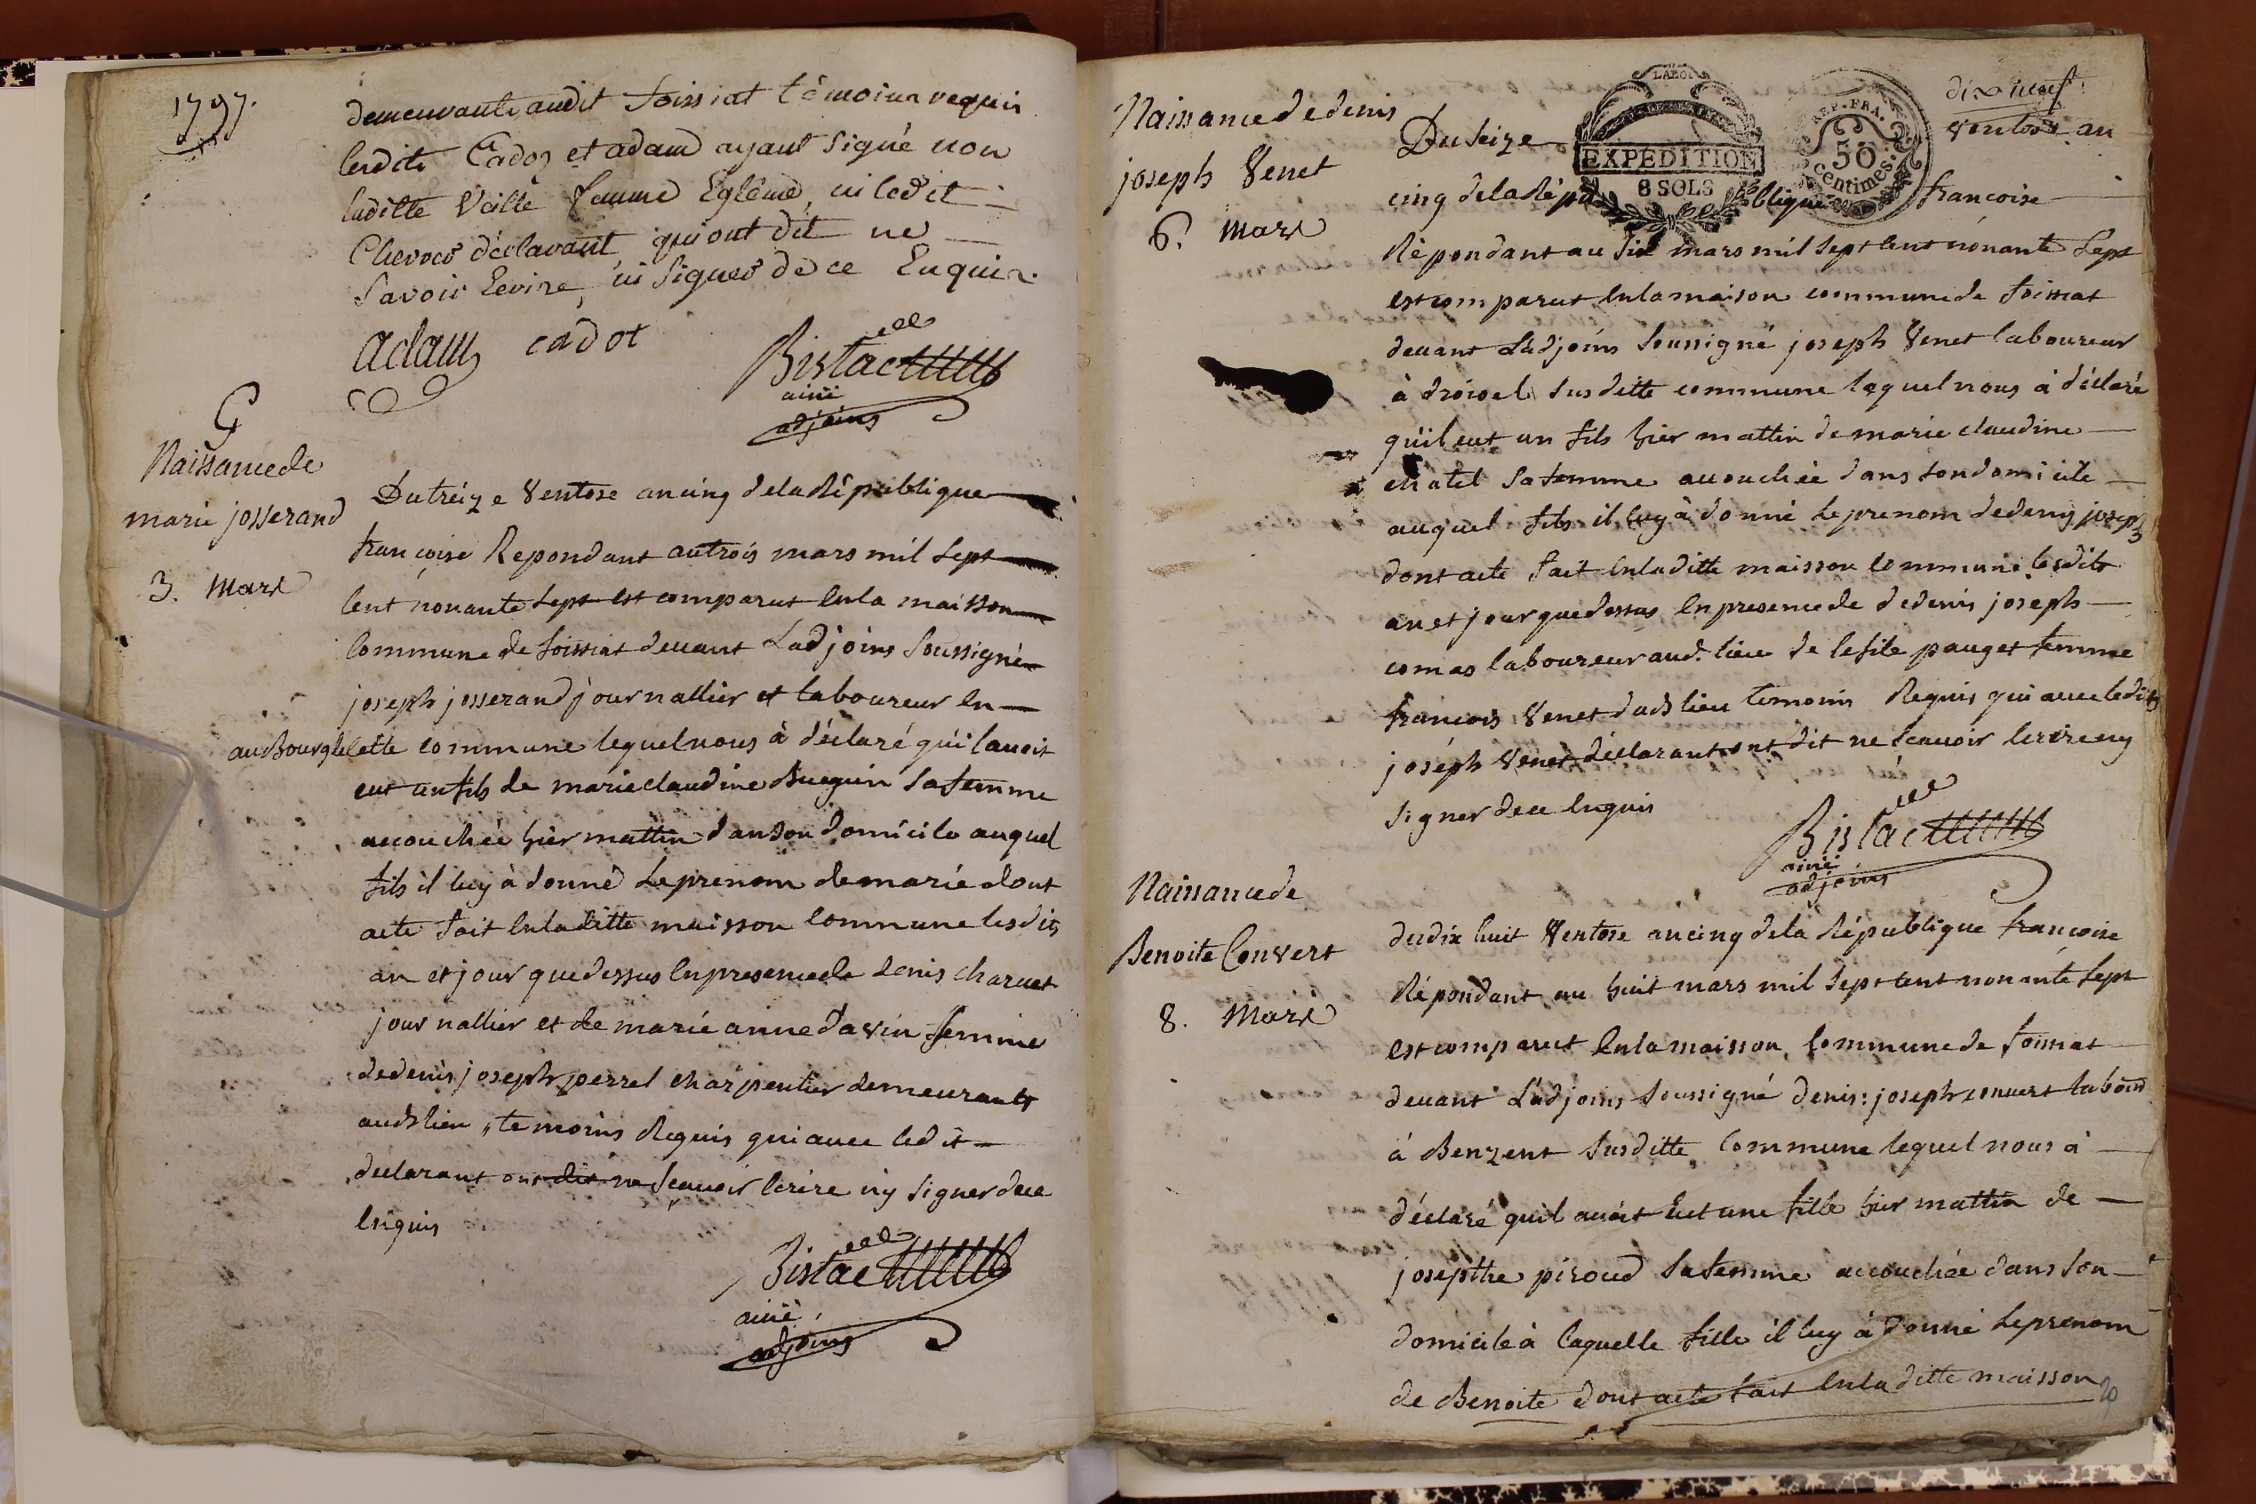 1797.
demeurants audit foissiat témoins requis
lesdits Cadoz et adam ayant signé non
laditte Veille femme Egléme, ni ledit
Chevros déclarant, qui ont dit ne
savoir Ecrire, ni signer de ce Enquis.
adam cadot
Bistac
ainé
adjoins
G
Naissance de
marie josserand
3. Mars
Du treize Ventose an cinq de la République
françoise Repondant au trois mars mil sept
cent nonante sept est comparut en la maisson
commune de foissiat devant Ladjoins soussigné
joseph josserand journallier et laboureur en
au Bourg de cette commune lequel nous à déclaré qu'il avoit
eut un fils de marie claudine Buguin sa femme
accouchée hier mattin dans son domicile auquel
fils il luy à donné le prenom de marie dont
acte fait en la ditte maisson commune les dits
an et jour que dessus en presence de denis charvet
journallier et de marie anne Davin femme
de denis joseph perret charpentier demeurants
aud. lieu, temoins Requis qui avec le dit
declarant ont dit ne scavoir lerire ny signer de ce
enquis
Bistac
ainé
adjoins
Naissance de denis
joseph Venet
6. Mars
LABOI
EXPÉDITION
8 SOLS
REP. FRA.
50
centimes
dix neuf
Du seize
ventose an
cinq de la République
françoise
Répondant au six mars mil sept cent nonante sept
est comparut en la maison commune de foissiat
devant L'adjoins soussigné joseph Venet laboureur
à susditte commune lequel nous à déclaré
qu'il eut un fils hier mattin de marie claudine
chatel sa femme accouchée dans son domicile
auquel fils il luy à donné le prenom de deny joseph
dont acte fait en la ditte maisson commune les dits
an et jour que dessus en presence de de denis joseph
comas laboureur aud. lieu de pauget femme
francois Venet dud. lieu temoins Requis qui avec le dit
joséph Venet déclarant ont dit ne scavoir lerire ny
signer de ce enquis
Bistac
ainé
adjoins
Naissance de
Benoite Convert
8. Mars
du dix huit Ventose an cinq de la République françoise
Répondant au huit mars mil sept cent nonante sept
est comparut en la maisson commune de foissiat
devant L'adjoins soussigné denis: joseph convert labour
à Benzent susditte commune lequel nous à
déclaré qu'il avoit eut une fille hier mattin de
josepthe piroud sa femme accouchée dans son
domicile à laquelle fille il luy à donné le prenom
de Benoite dont acte fait en la ditte maisson